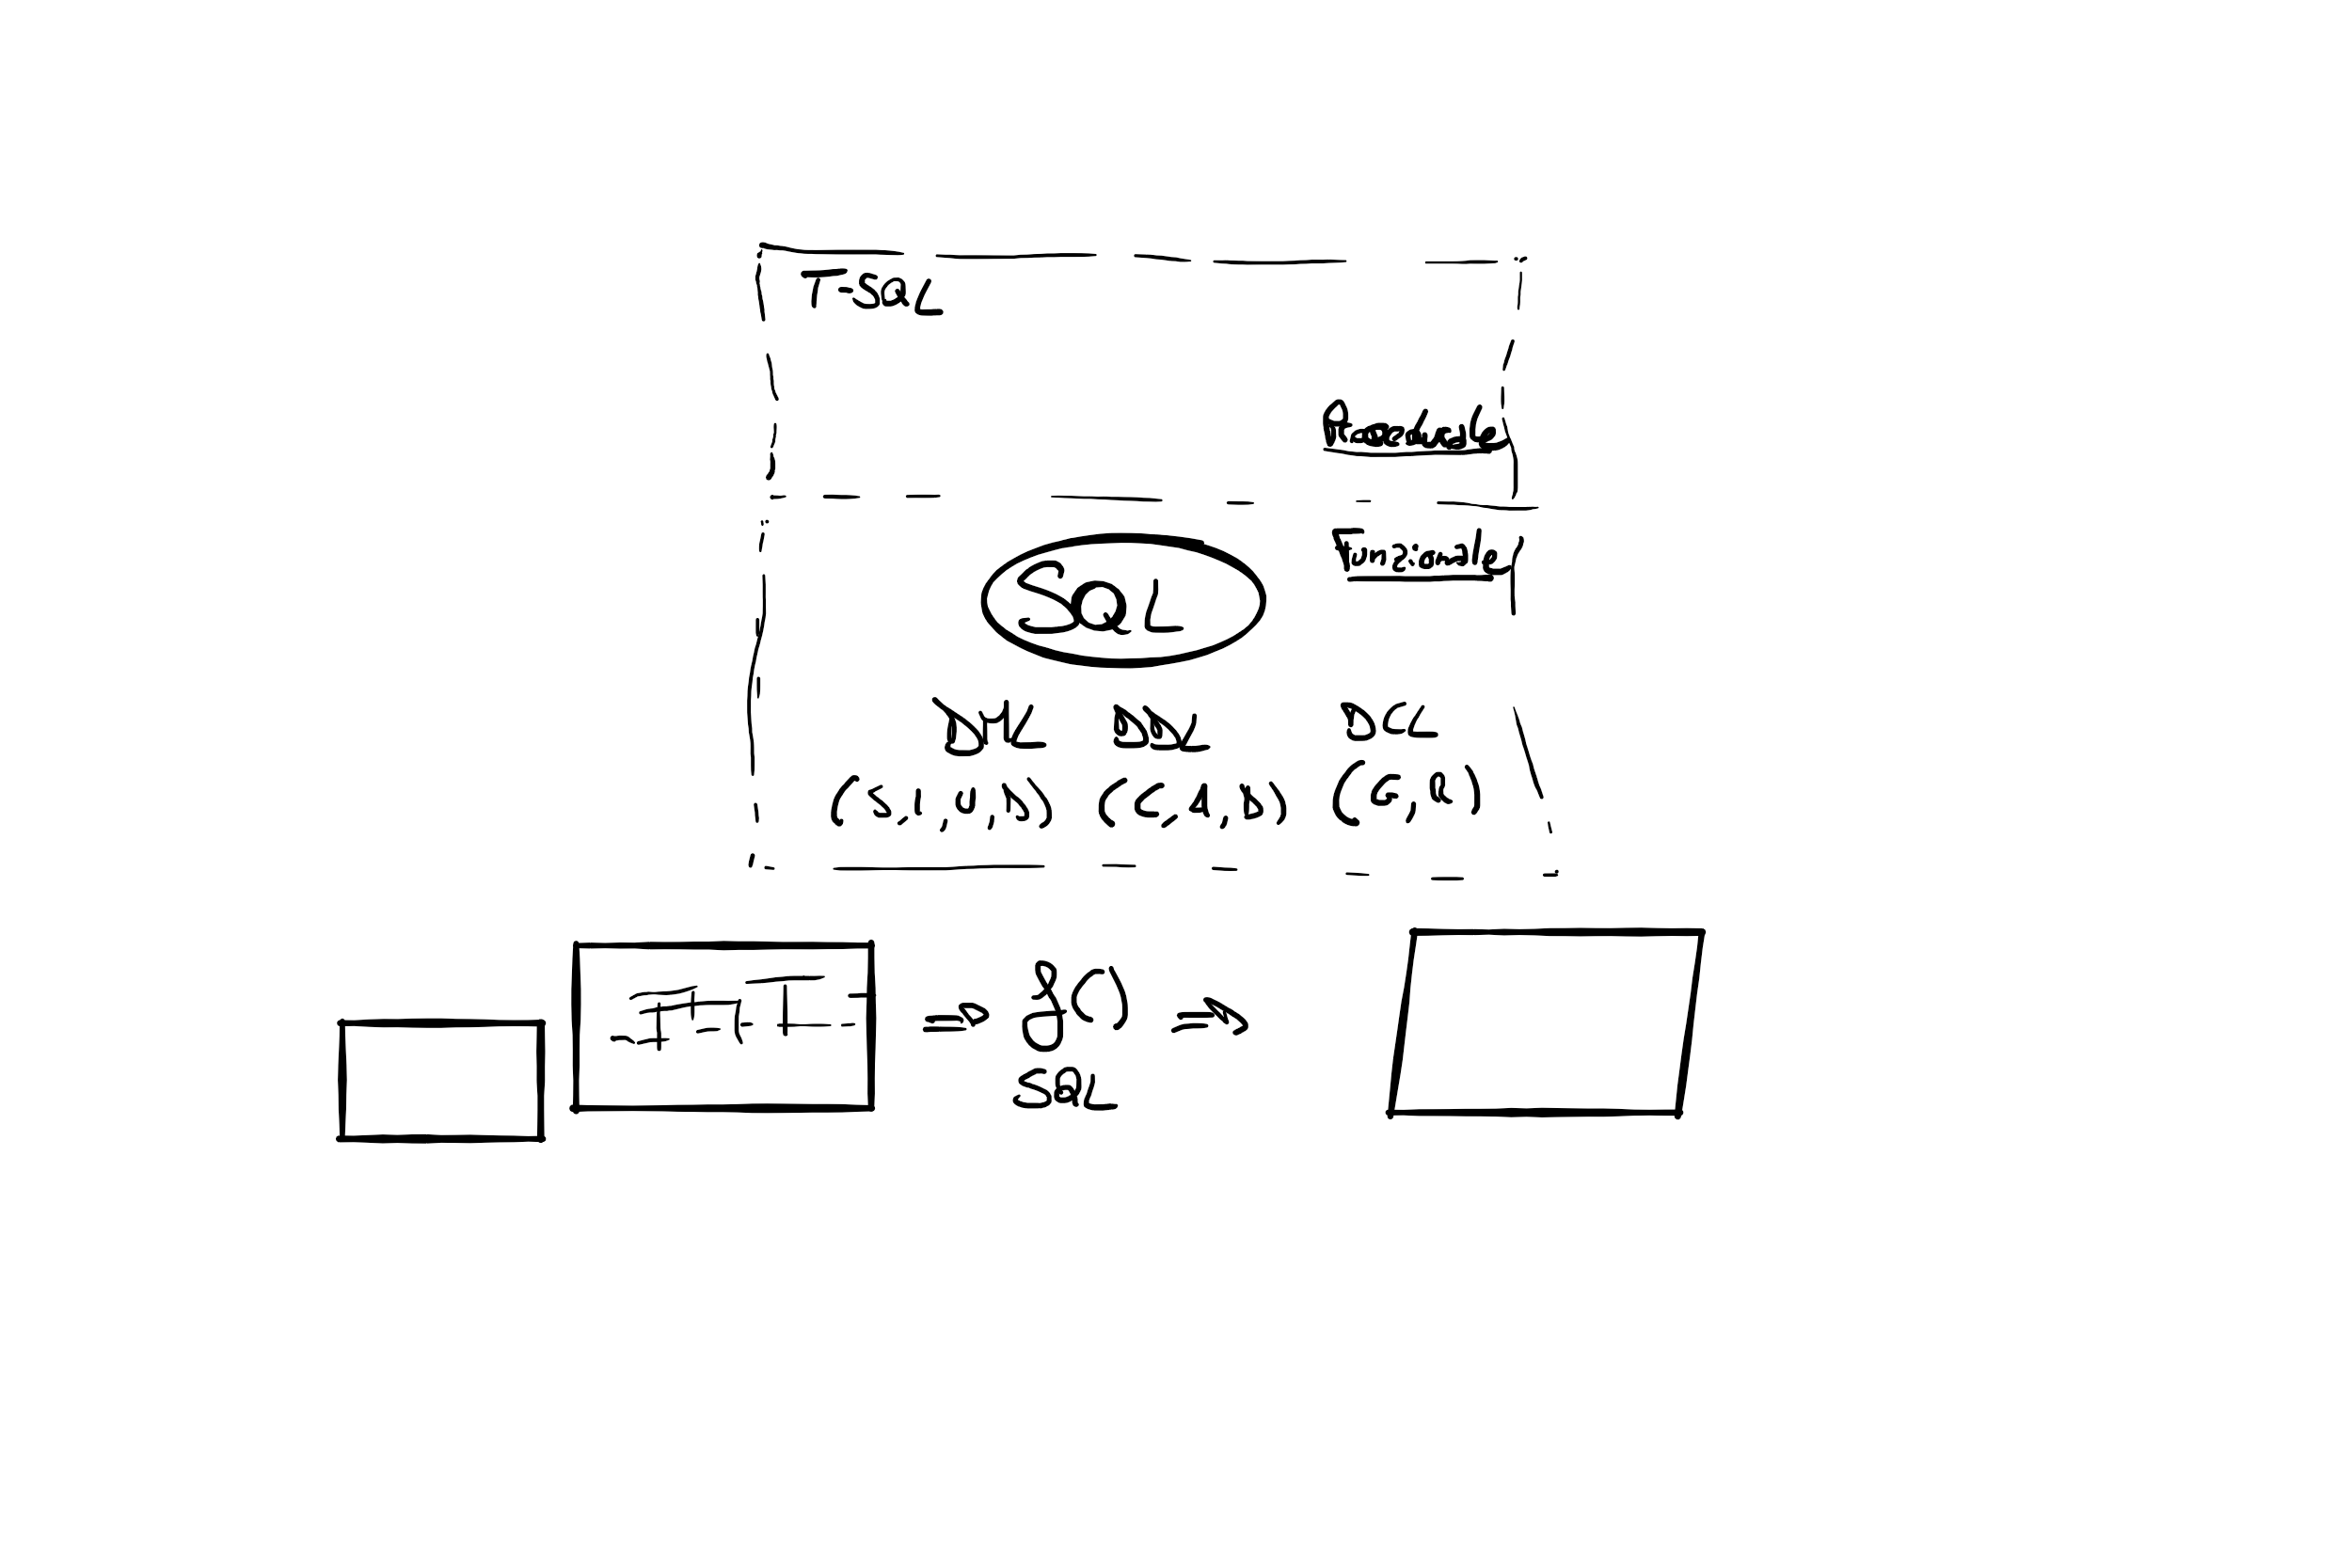 T-SQL
Procedurale
Funzionale
SQL
DML DDL DCL
(S,I,U,D) (C,A,D) (G,R)
⇒ f() ⇒
SQL